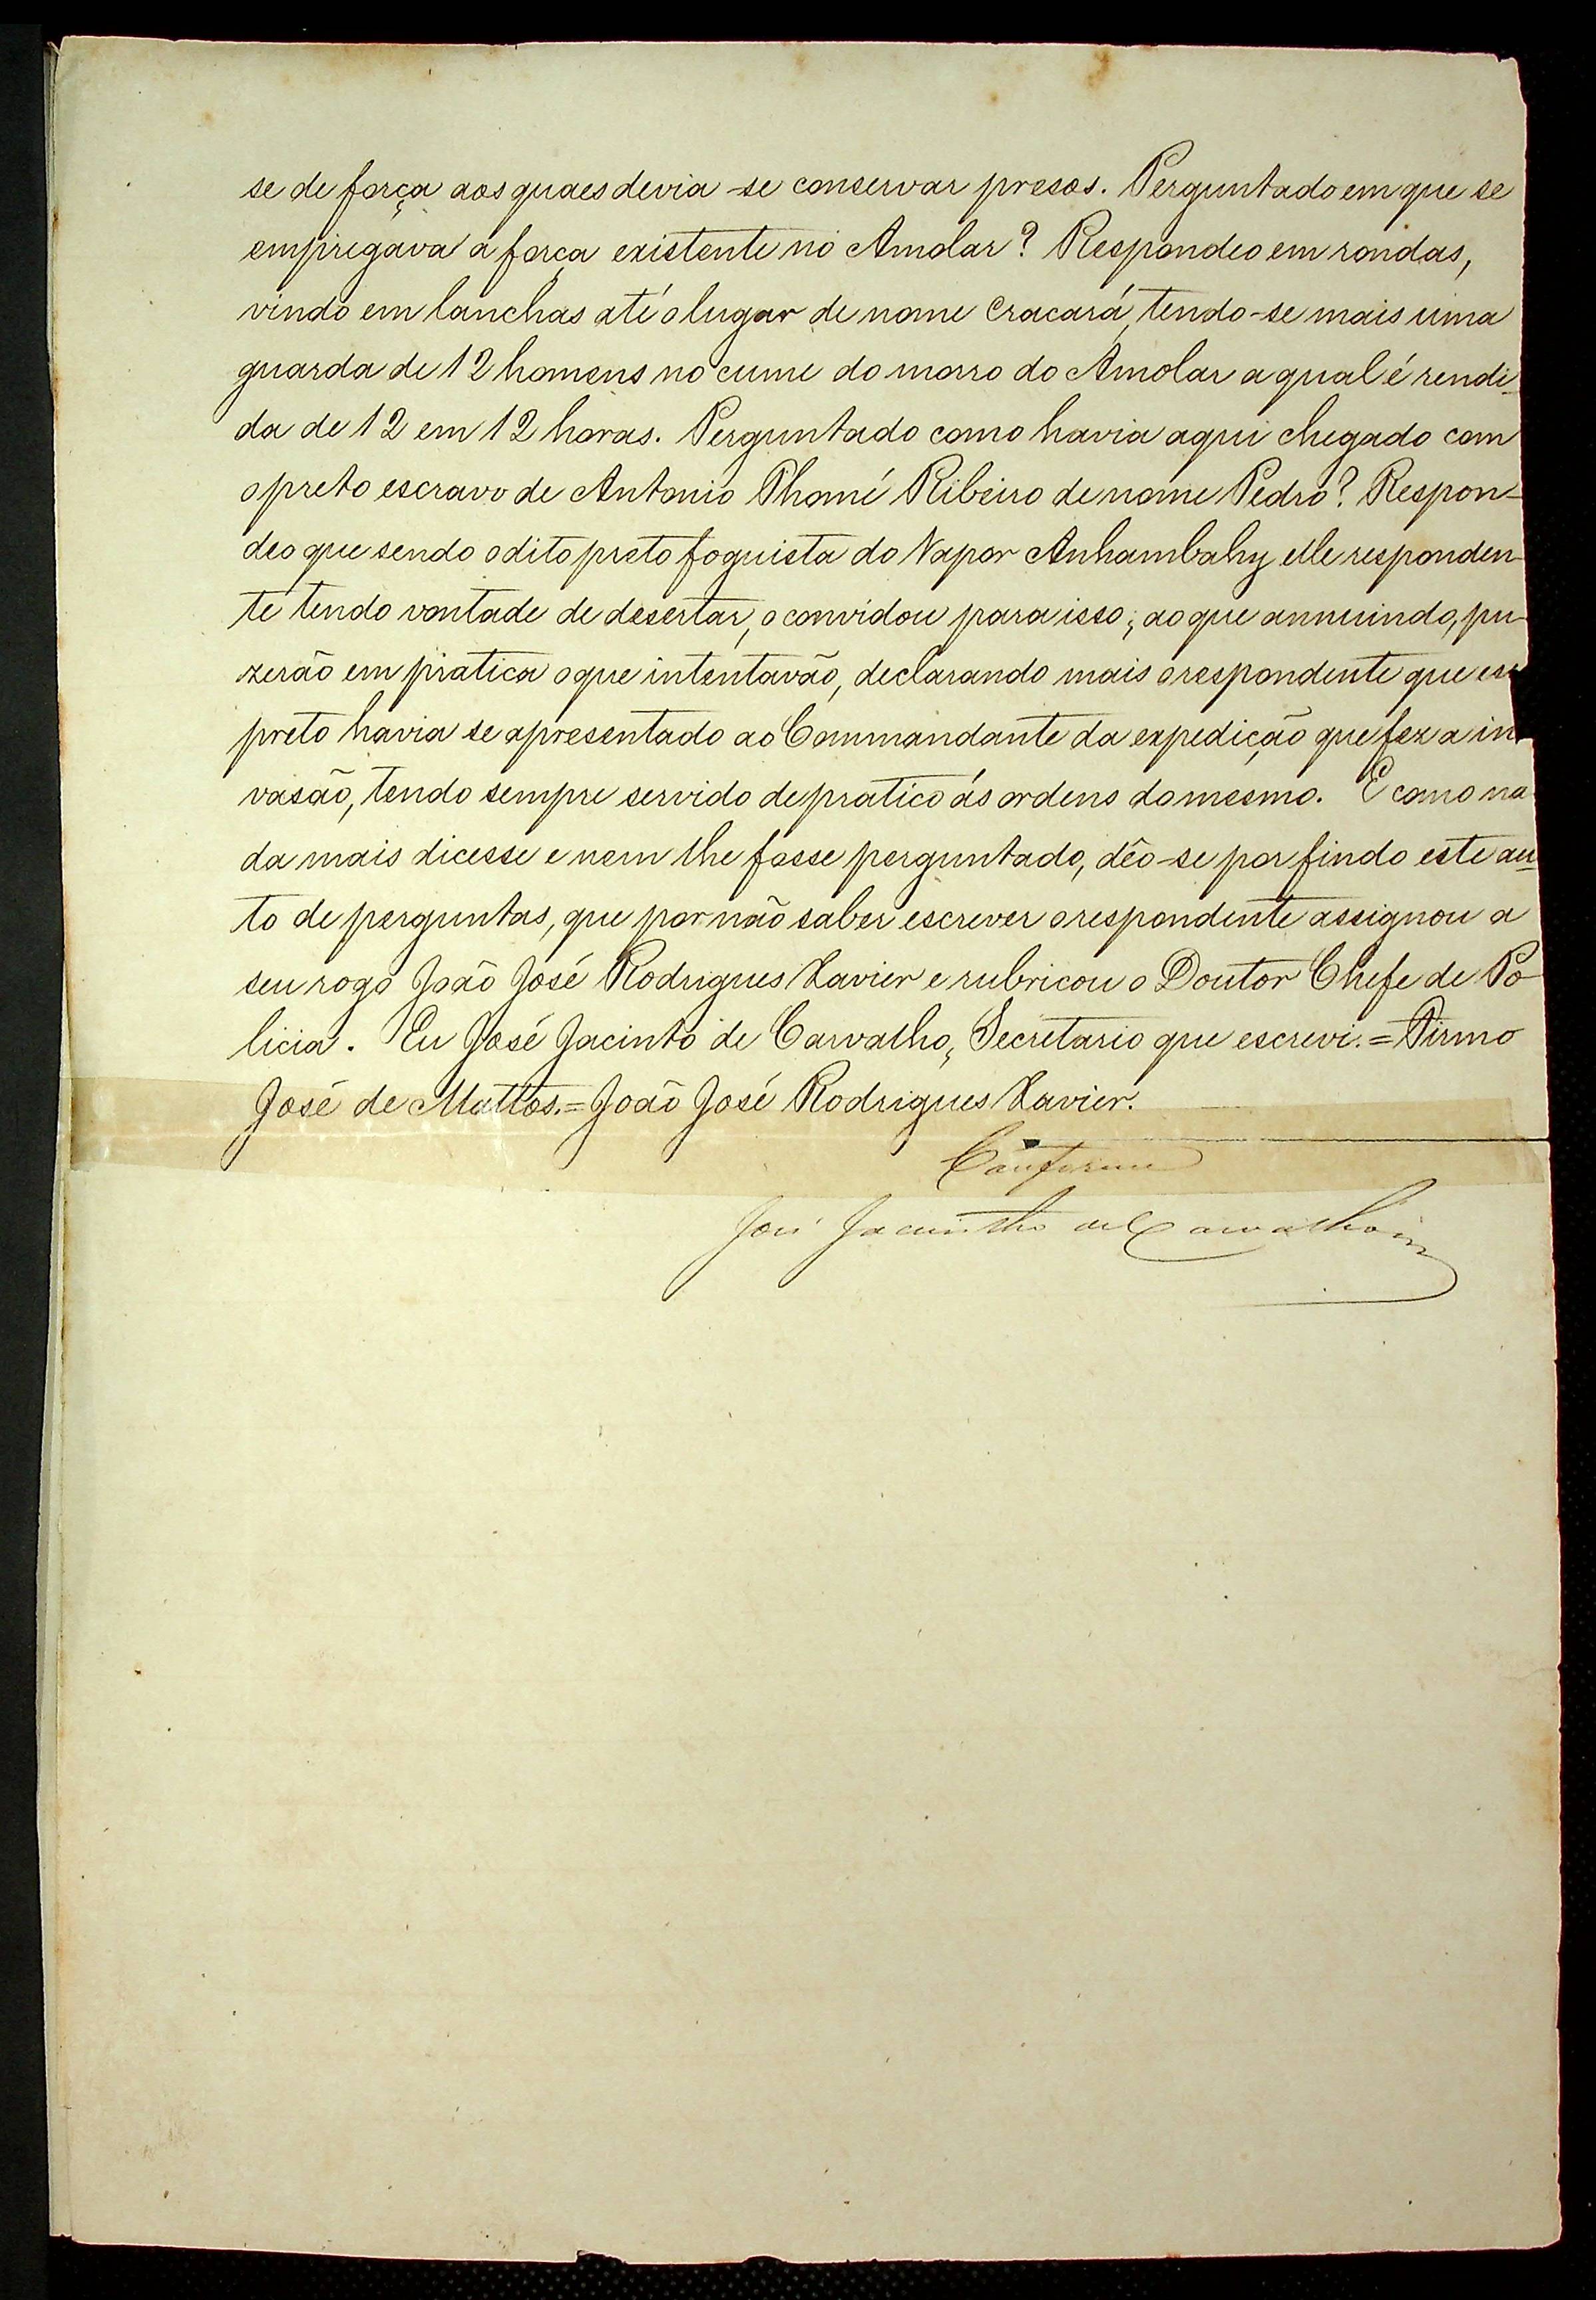 se de força aos quaes devia-se conservar presos. Perguntado em que se
empregava a força existente no Amolar? Respondeo em rondas,
vindo em lanchas até o lugar de nome Cracará, tendo-se mais uma
guarda de 12 homens no cume do morro do Amolar a qual é rendi-
da de 12 em 12 horas. Perguntado como havia aqui chegado com
o preto escravo de Antonio Thomé Ribeiro de nome Pedro? Respon-
deo que sendo o dito preto foguista do Vapor Anhambahy elle responden-
te tendo vontade de desertar, o convidou para isso; ao que annuindo, pu-
zerão em pratica o que intentavão, declarando mais o respondente que
preto havia se apresentado ao Commandante da expedição que fez a in-
vasão, tendo sempre servido de pratico ás ordens do mesmo. E como na-
da mais dicesse e nem lhe fosse perguntado, dêo-se por findo este au-
to de perguntas, que por não saber escrever o respondente assignou a
seu rogo João José Rodrigues Xavier e rubricou o Doutor Chefe de Po-
licia. Eu José Jacinto de Carvalho, Secretario que escrevi. = Firmo
José de Mattos. = João José Rodrigues Xavier.
Conforme
José Jacintho de Carvalho